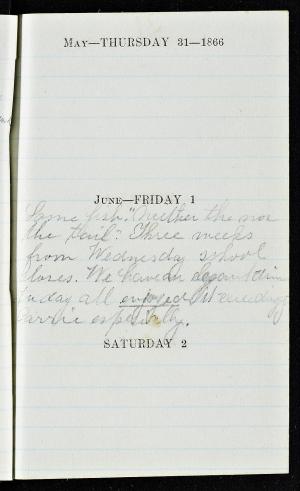 May—THURSDAY 31—1866
June—FRIDAY 1
"Some fish." "Neither the nor
the tail". Three weeks
from Wednesday school
closes. We have an elegant
today all enjoyed it
Carrie especially.
SATURDAY 2